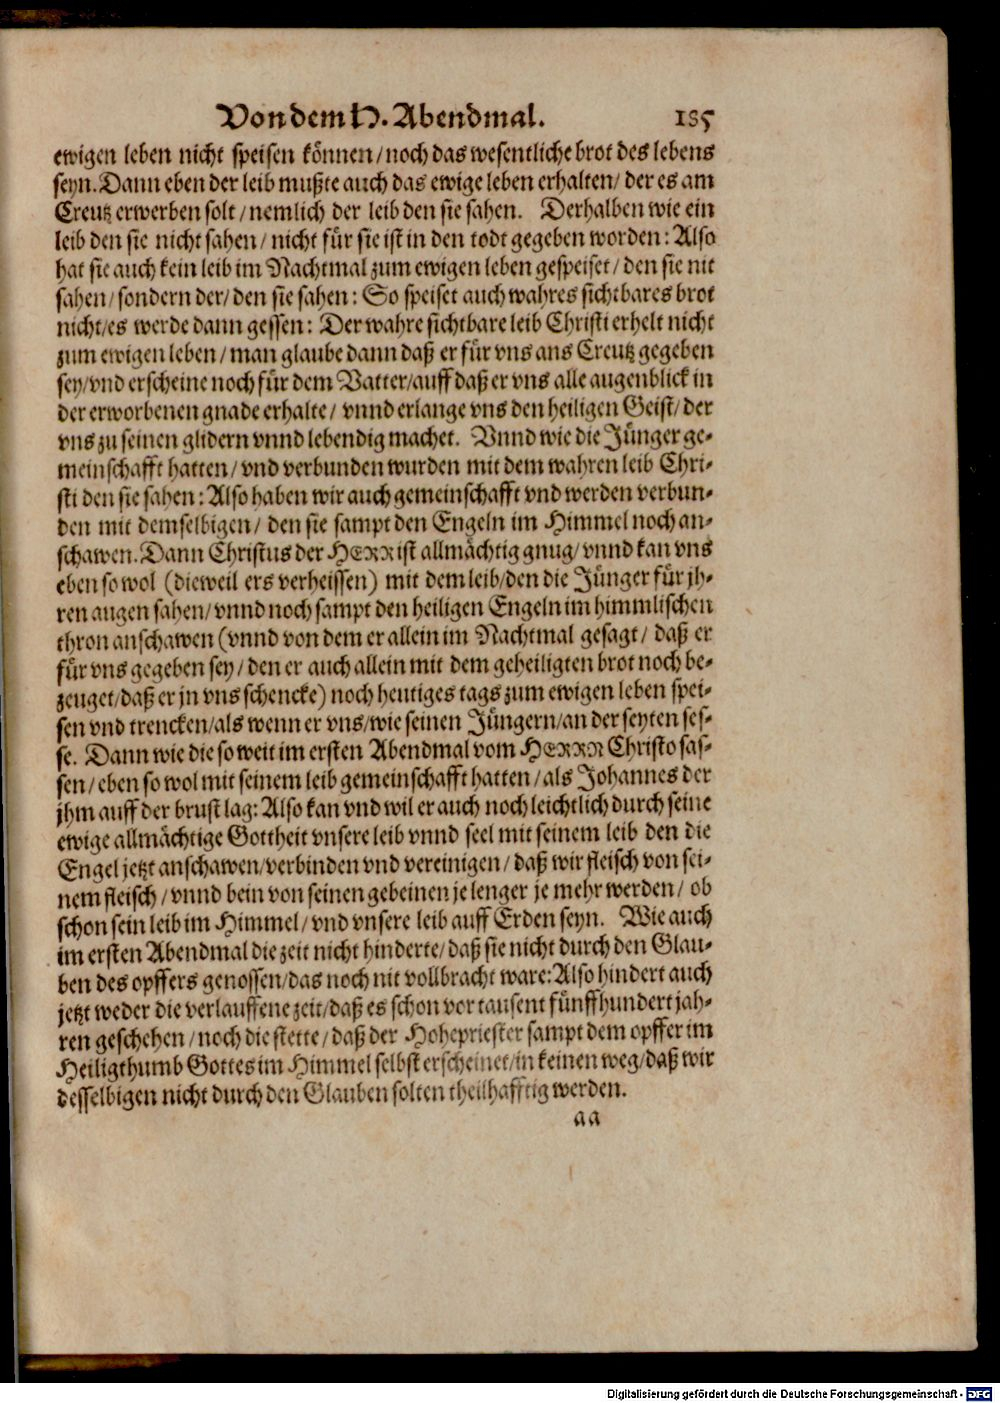 Von dem H. Abendmal. 135
ewigen leben nicht speisen können/noch das wesentliche brot des lebens
seyn. Dann eben der leib mußte auch das ewige leben erhalten/ der es am
Creutz erwerben solt/nemlich der leib den sie sahen. Derhalben wie ein
leib den sie nicht sahen/nicht für sie ist in den todt gegeben worden: Also
hat sie auch kein leib im Nachtmal zum ewigen leben gespeiset/den sie nit
sahen/sondern der/den sie sahen: So speiset auch wahres sichtbares brot
nicht/es werde dann gessen: Der wahre sichtbare leib Christi erhelt nicht
zum ewigen leben/man glaube dann daß er für vns ans Creutz gegeben
sey/vnd erscheine noch für dem Vatter/auff daß er vns alle augenblick in
der erworbenen gnade erhalte/ vnnd erlange vns den heiligen Geist/der
vns zu seinen glidern vnnd lebendig machet. Vnnd wie die Jünger ge-
meinschafft hatten/vnd verbunden wurden mit dem wahren leib Chri-
sti den sie sahen: Also haben wir auch gemeinschafft vnd werden verbun-
den mit demselbigen/ den sie sampt den Engeln im Himmel noch an-
schawen. Dann Christus der HERR ist allmächtig gnug/vnnd kan vns
eben so wol (dieweil ers verheissen) mit dem leib/den die Jünger für jh-
ren augen sahen/vnnd noch sampt den heiligen Engeln im himmlischen
thron anschawen (vnnd von dem er allein im Nachtmal gesagt/ daß er
für vns gegeben sey/den er auch allein mit dem geheiligten brot noch be-
zeuget/daß er jn vns schencke) noch heutiges tags zum ewigen leben spei-
sen vnd trencken/als wenn er vns/wie seinen Jüngern/an der seyten ses-
se. Dann wie die so weit im ersten Abendmal vom HERRN Christo sas-
sen/eben so wol mit seinem leib gemeinschafft hatten/als Johannes der
jhm auff der brust lag: Also kan vnd wil er auch noch leichtlich durch seine
ewige allmächtige Gottheit vnsere leib vnnd seel mit seinem leib den die
Engel jetzt anschawen/verbinden vnd vereinigen/daß wir fleisch von sei-
nem fleisch/vnnd bein von seinen gebeinen je lenger je mehr werden/ ob
schon sein leib im Himmel/vnd vnsere leib auff Erden seyn. Wie auch
im ersten Abendmal die zeit nicht hinderte/daß sie nicht durch den Glau-
ben des opffers genossen/das noch nit vollbracht ware: Also hindert auch
jetzt weder die verlauffene zeit/daß es schon vor tausent fünffhundert jah-
ren geschehen/noch die stette/daß der Hohepriester sampt dem opffer im
Heiligthumb Gottes im Himmel selbst erscheinet/in keinen weg/daß wir
desselbigen nicht durch den Glauben solten theilhafftig werden.
aa
Digitalisierung gefördert durch die Deutsche Forschungsgemeinschaft - DFG